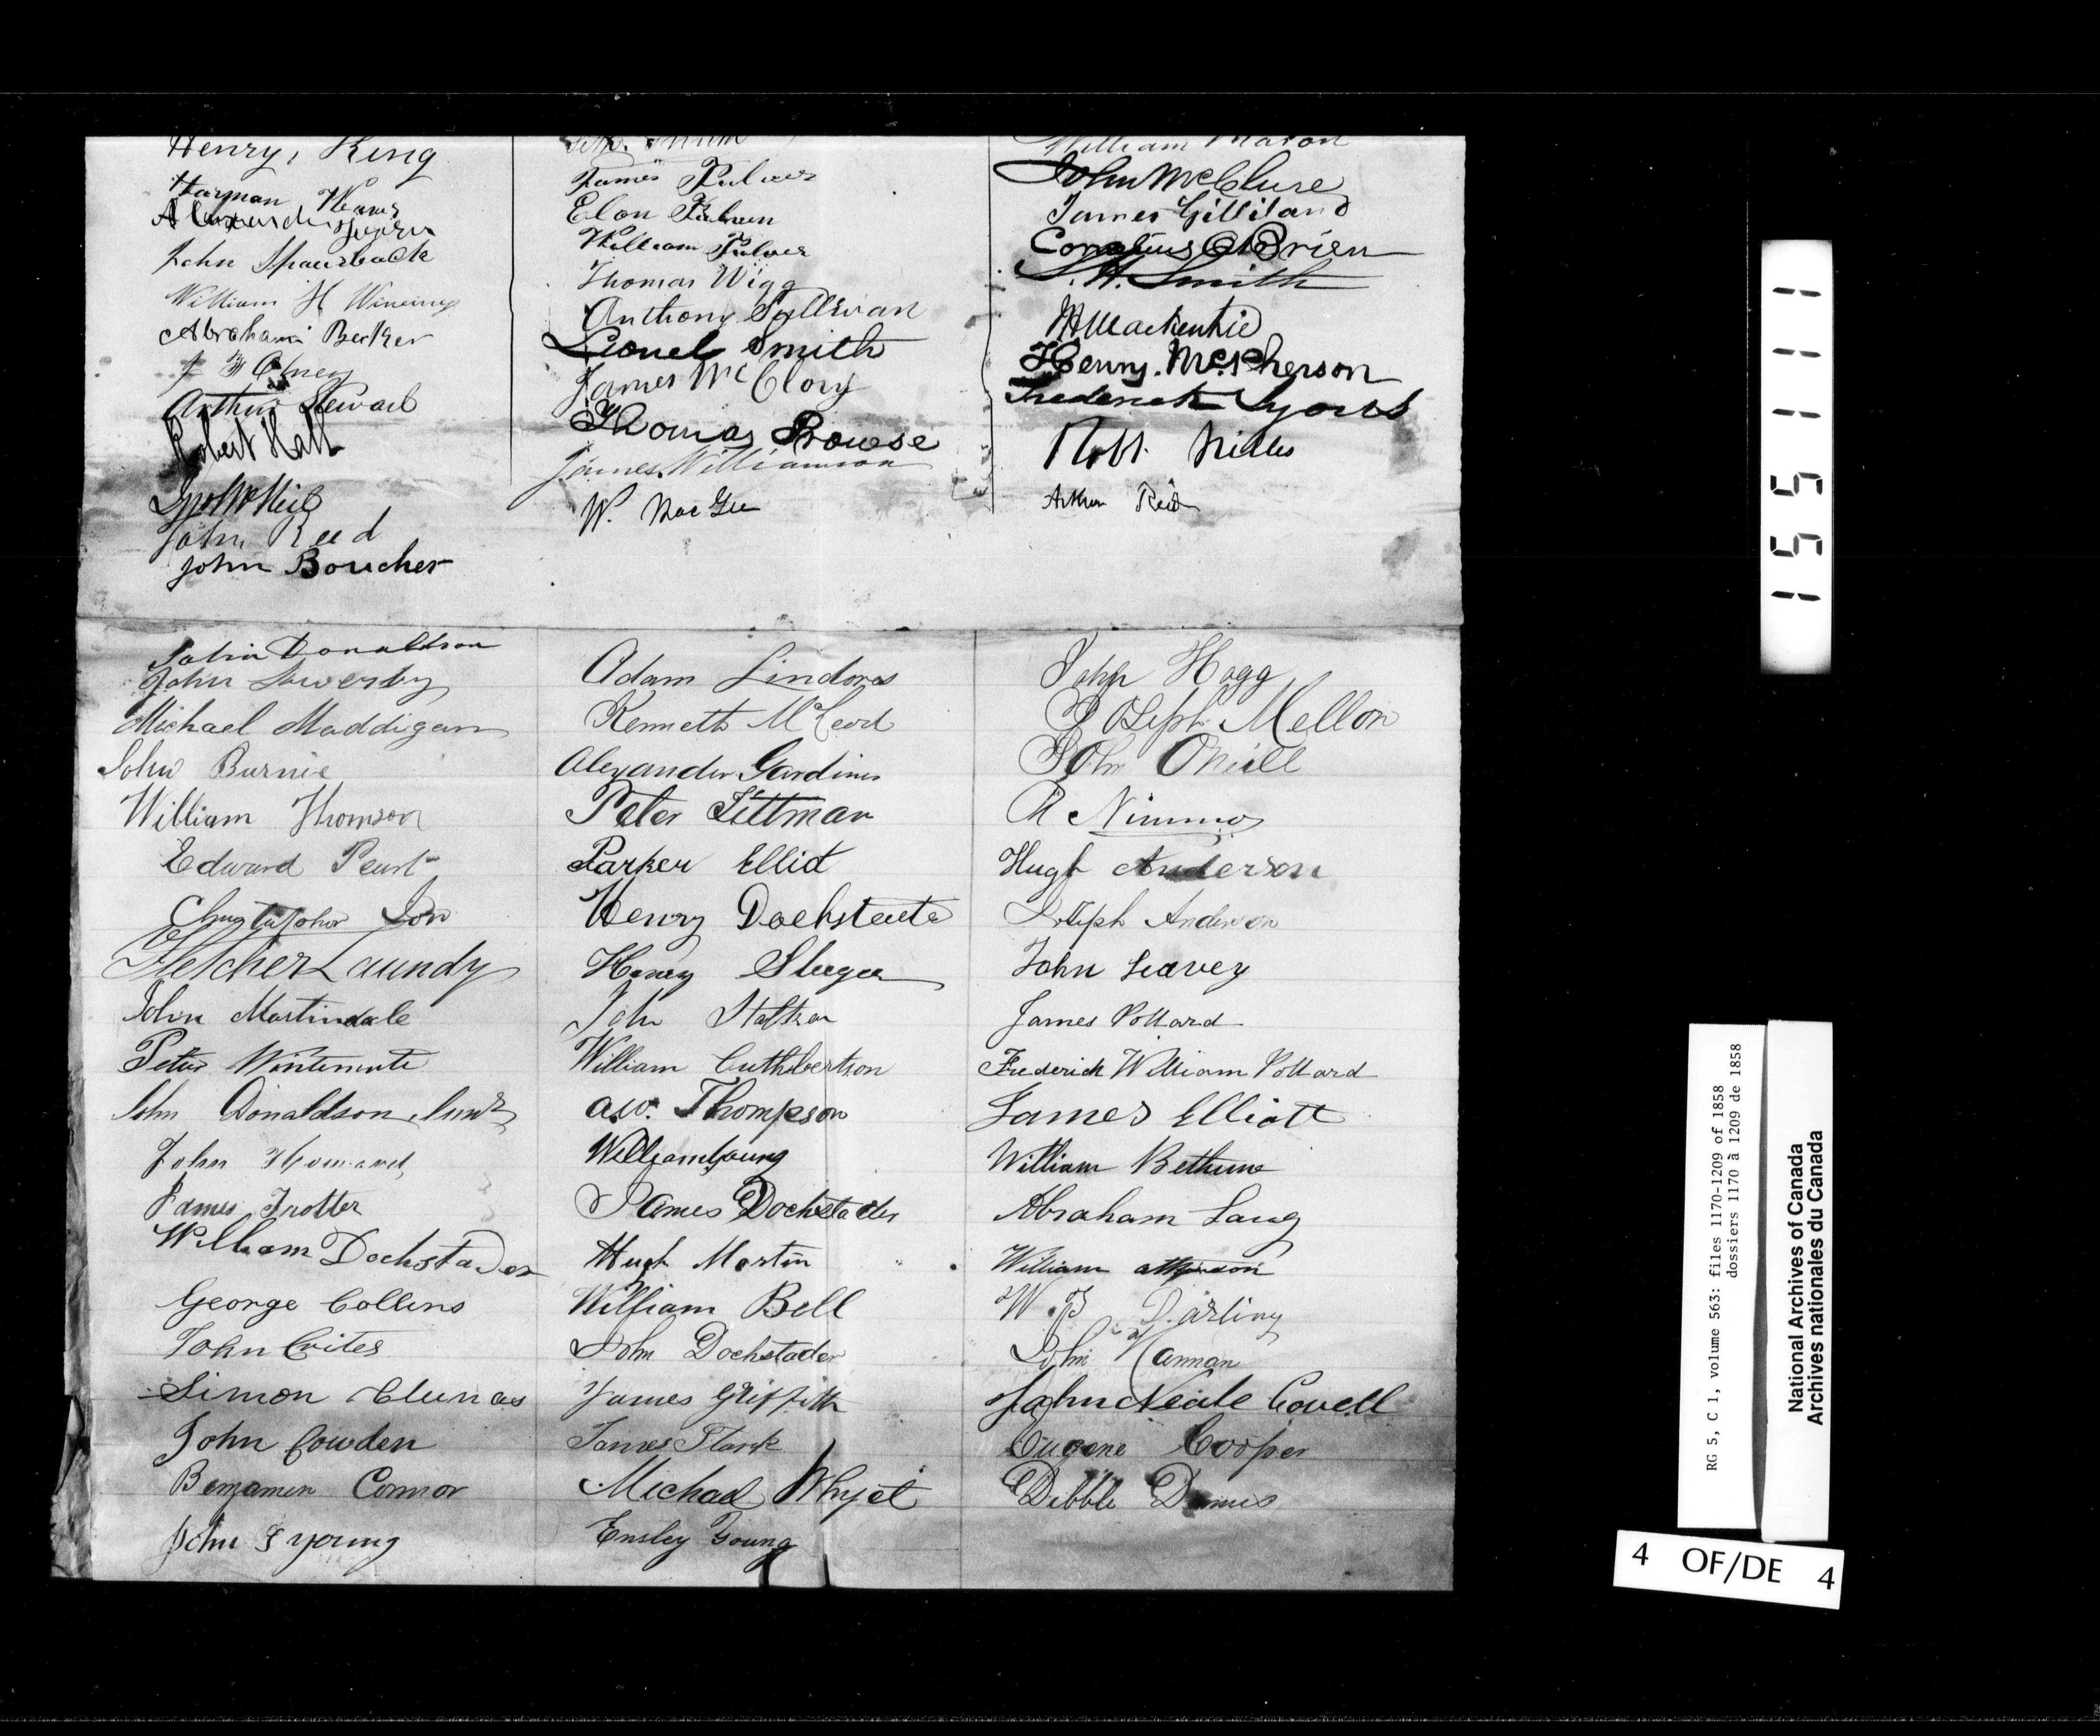 Henry King
Harman
John
William H
Abraham Becker
Arthur Stewart
Robert Hall
John Reed
John Boucher
James Pulver
Elon Pulver
William Pulver
Thomas Wigg
Anthony Sullivan
Lionel Smith
James McClory
Thomas Prowse
James Williamson
W. MacGee
William
John McClure
James Gilliland
Cornelius OBrien
S. H. Smith
Henry McPherson
Frederick Lyons
Robt. Nilles
Arthur Reid
John Donaldson
John Sowerby
Michael Maddigan
John Burnie
William Thomson
Edward Peart
Christopher
Fletcher Laundy
John Martindale
Peter Wintemute
John Donaldson Junr
John
James Trotter
William Dochstader
George Collins
John Crites
Simon Clunas
John Cowden
Benjamen Connor
John F young
Adam Lindores
Kenneth McLeod
Alexander Gardiner
Peter Tittman
Parker Elliot
Henry Dochsteter
Henry
John Stalker
William Cuthbertson
A.W. Thompson
William Young
James Dochstader
Hugh Martin
William Bell
John Dochstader
James Griffith
James Stark
Michael Whyet
Ensley Young
John Hogg
Joseph Mellon
John ONeill
R Nimmo
Hugh Anderson
Joseph Anderson
John Seavey
James Pollard
Frederick William Pollard
James Elliott
William Bethune
Abraham Laug
William atkinson
W. F. Darling
John Hannan
John Neale Covell
Eugene Cooper
Dibble
1551111
RG 5, C 1, volume 563: files 1170-1209 of 1858
dossiers 1170 à 1209 de 1858
National Archives of Canada
Archives nationales du Canada
4 OF/DE 4